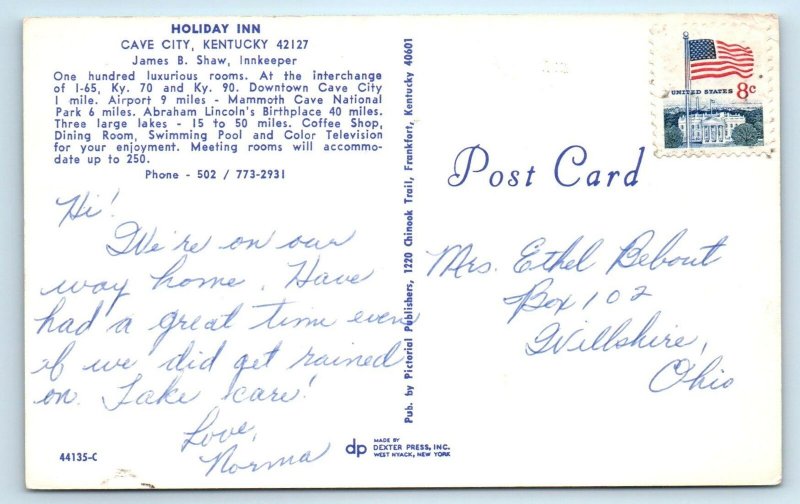 HOLIDAY INN
CAVE CITY, KENTUCKY 42127
James B. Shaw, Innkeeper
One hundred luxurious rooms. At the interchange
of I-65, Ky. 70 and Ky. 90. Downtown Cave City
1 mile. Airport 9 miles - Mammoth Cave National
Park 6 miles. Abraham Lincoln's Birthplace 40 miles.
Three large lakes - 15 to 50 miles. Coffee Shop,
Dining Room, Swimming Pool and Color Television
for your enjoyment. Meeting rooms will accommo-
date up to 250.
Phone - 502 / 773-2931
Hi!
We're on our
way home. Have
had a great time even
if we did get rained
on. Take care!
Love,
Norma
44135-C
Pub. by Pictorial Publishers, 1220 Chinook Trail, Frankfort, Kentucky 40601
dp
MADE BY
DEXTER PRESS, INC.
WEST NYACK, NEW YORK
UNITED STATES 8c
Post Card
Mrs. Ethel Bebout
Box 102
Willshire,
Ohio